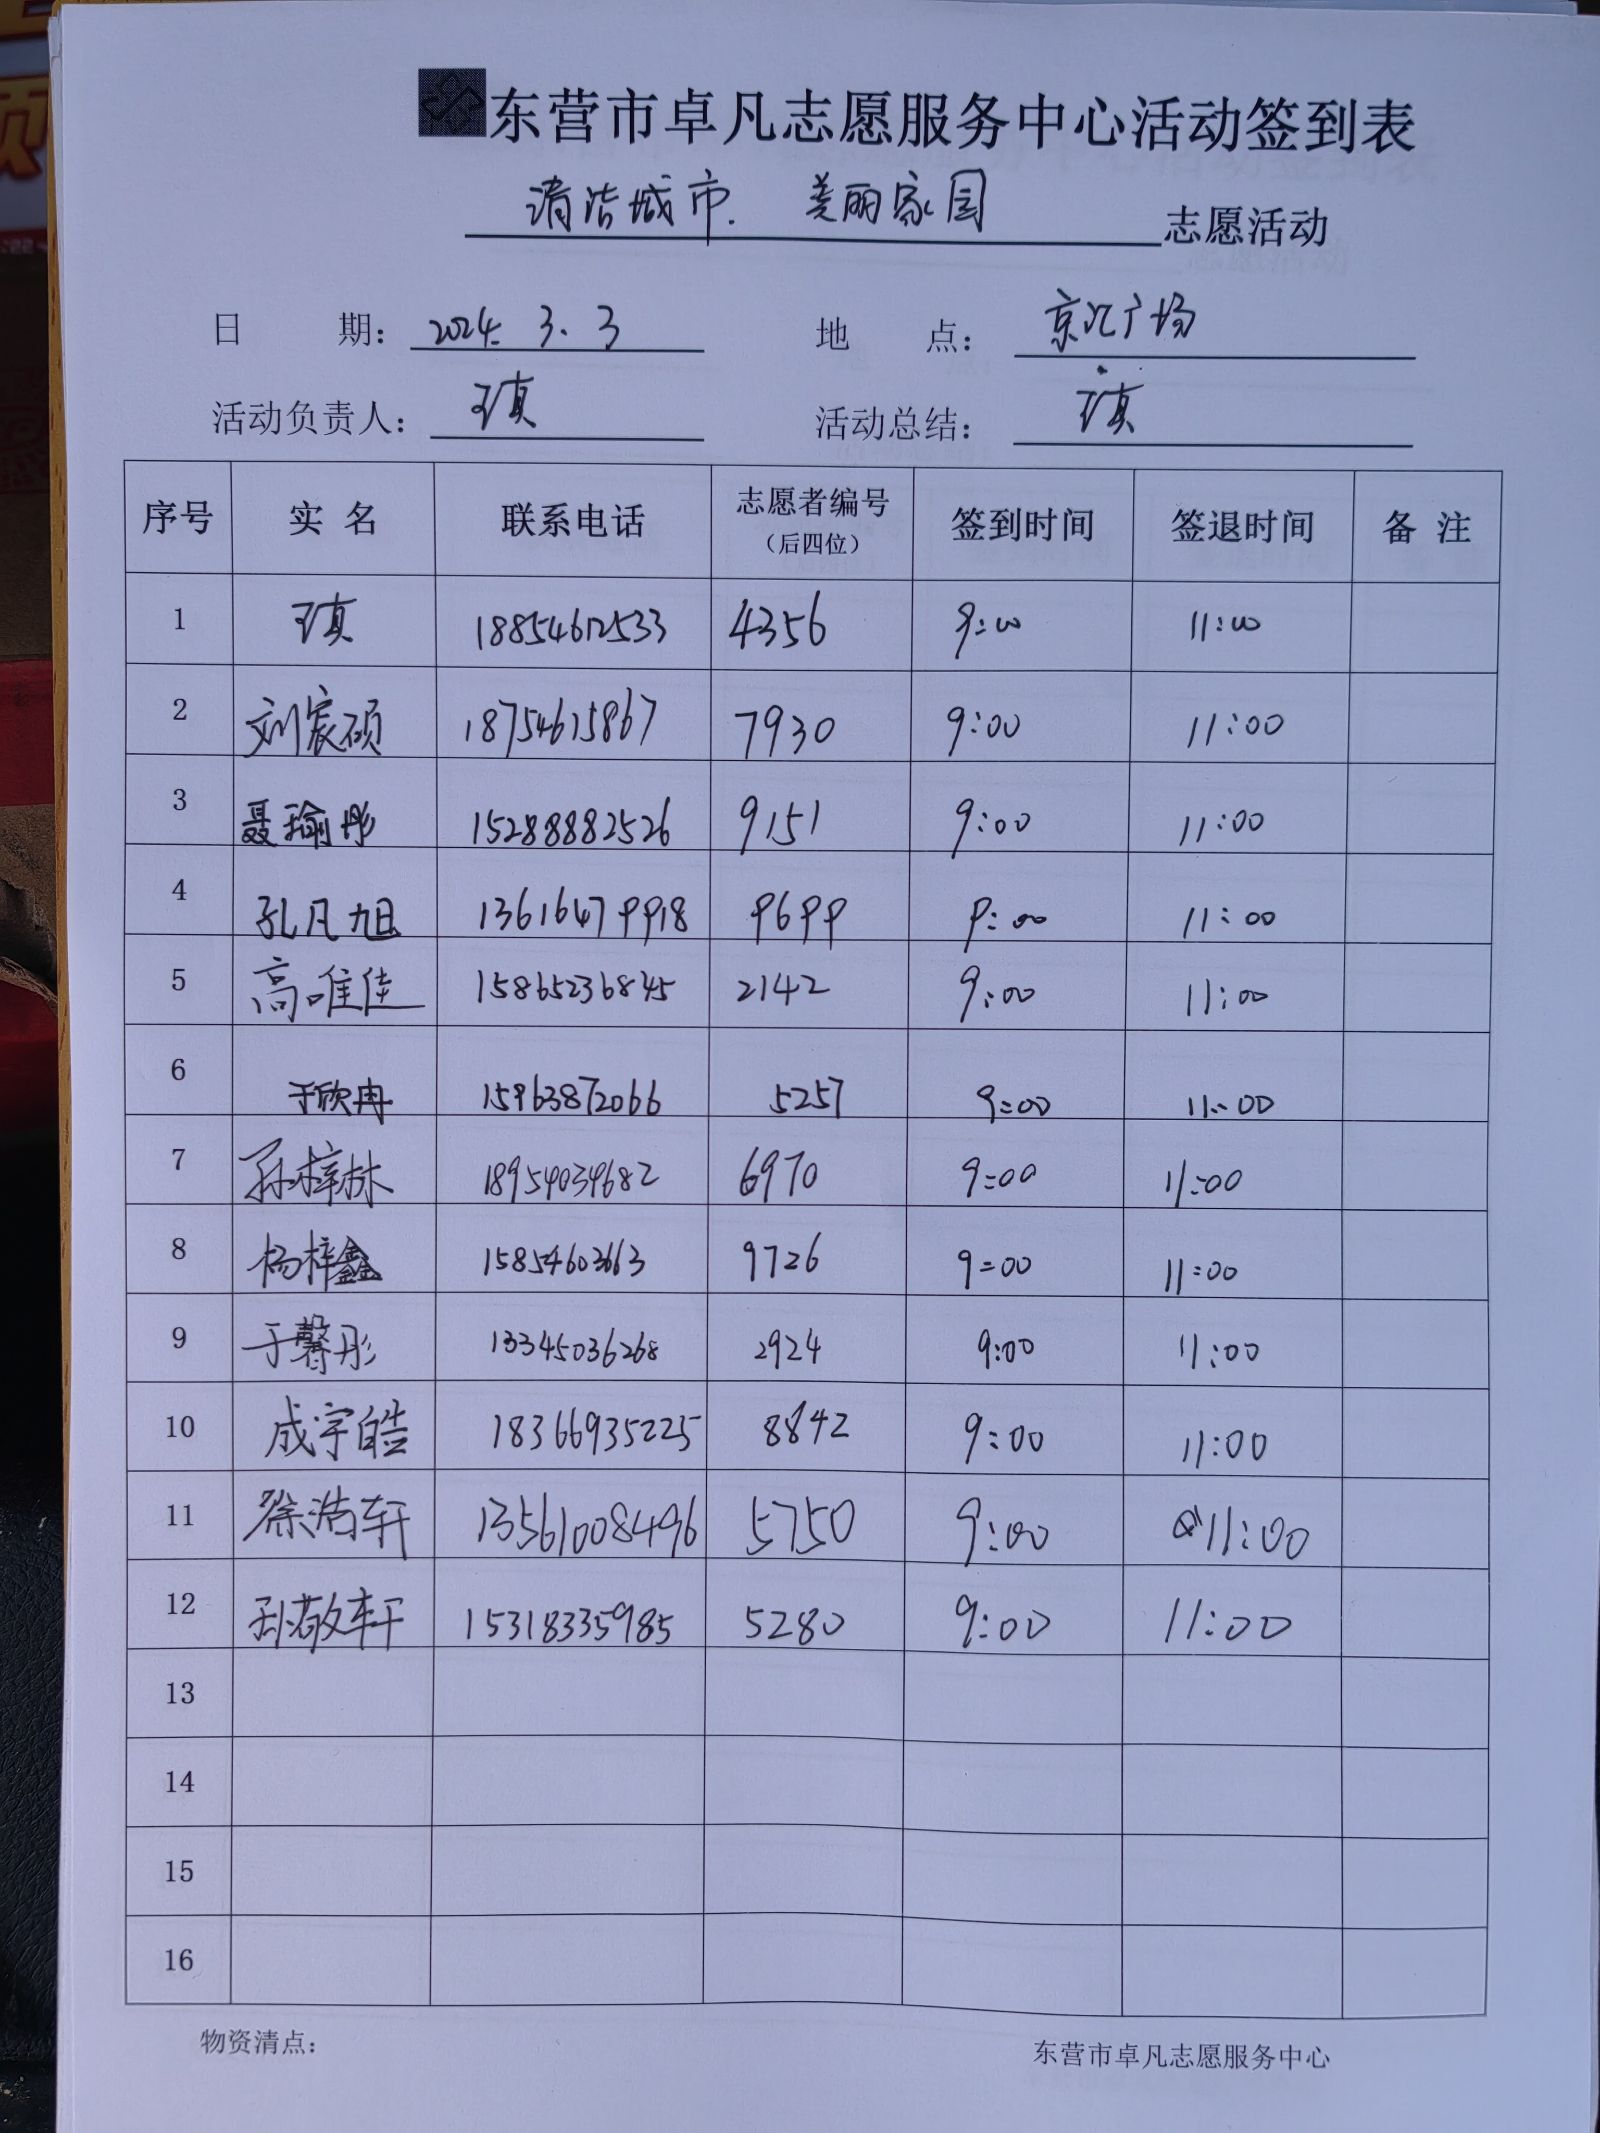 东营市卓凡志愿服务中心活动签到表
清洁城市. 美丽家园 志愿活动
日 期: 2024. 3. 3 地 点: 京汇广场
活动负责人: 王真 活动总结: 王真
序号 实 名 联系电话 志愿者编号 (后四位) 签到时间 签退时间 备 注
1 王真 18854612533 4356 9:00 11:00
2 刘宸硕 18754615867 7930 9:00 11:00
3 聂瑜彤 15288882526 9151 9:00 11:00
4 孔凡旭 13616479918 9699 9:00 11:00
5 高唯佳 15865236845 2142 9:00 11:00
6 于欣冉 15963872066 5257 9:00 11:00
7 孙梓林 18954034682 6970 9:00 11:00
8 杨梓鑫 15854603663 9726 9:00 11:00
9 于馨彤 13345036268 2924 9:00 11:00
10 成宇皓 18366935225 8842 9:00 11:00
11 徐浩轩 13561008496 5750 9:00 11:00
12 孙敬轩 15318335985 5280 9:00 11:00
13
14
15
16
物资清点: 东营市卓凡志愿服务中心